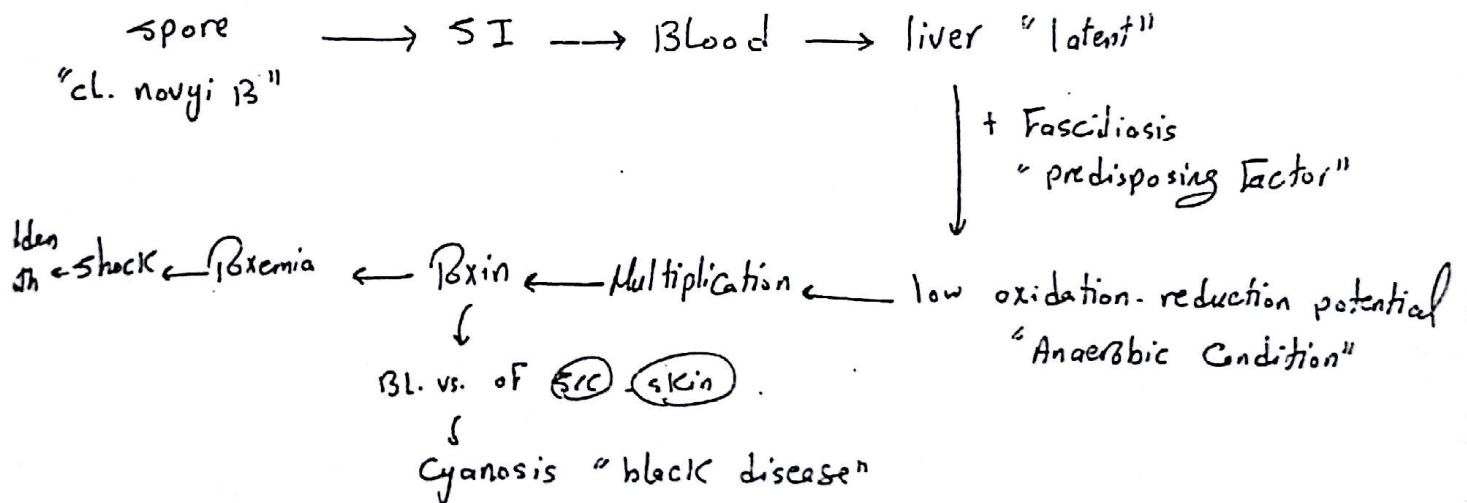 spore → SI → Blood → liver "latent"
"cl. novyi B"
+ Fasciliasis
"predisposing Factor"
← shock ← Toxemia ← Toxin ← Multiplication ← low oxidation-reduction potential
"Anaerobic Condition"
BL. vs. of S/C skin
Cyanosis "black disease"